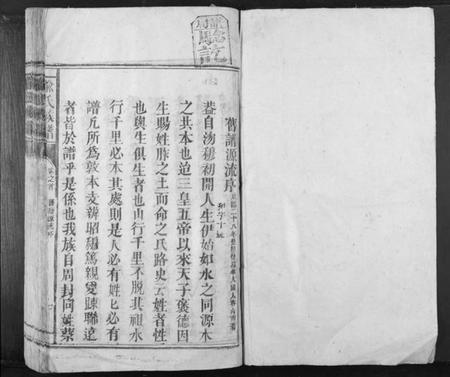 驗訖
舊譜源流序
蓋自沕穆初開人生伊始如水之同源木
之共本也迨三皇五帝以來天子褒德因
生賜姓胙之土而命之氏路史云姓者性
也與生俱生者也由行千里不脫其祖水
行千里必本其處則是人必有姓匕必有
譜凡所為敦本支辨昭穆篤親愛踈聯遠
者皆於譜乎是係也我族自周封同姓蔡
氏族譜
卷之首